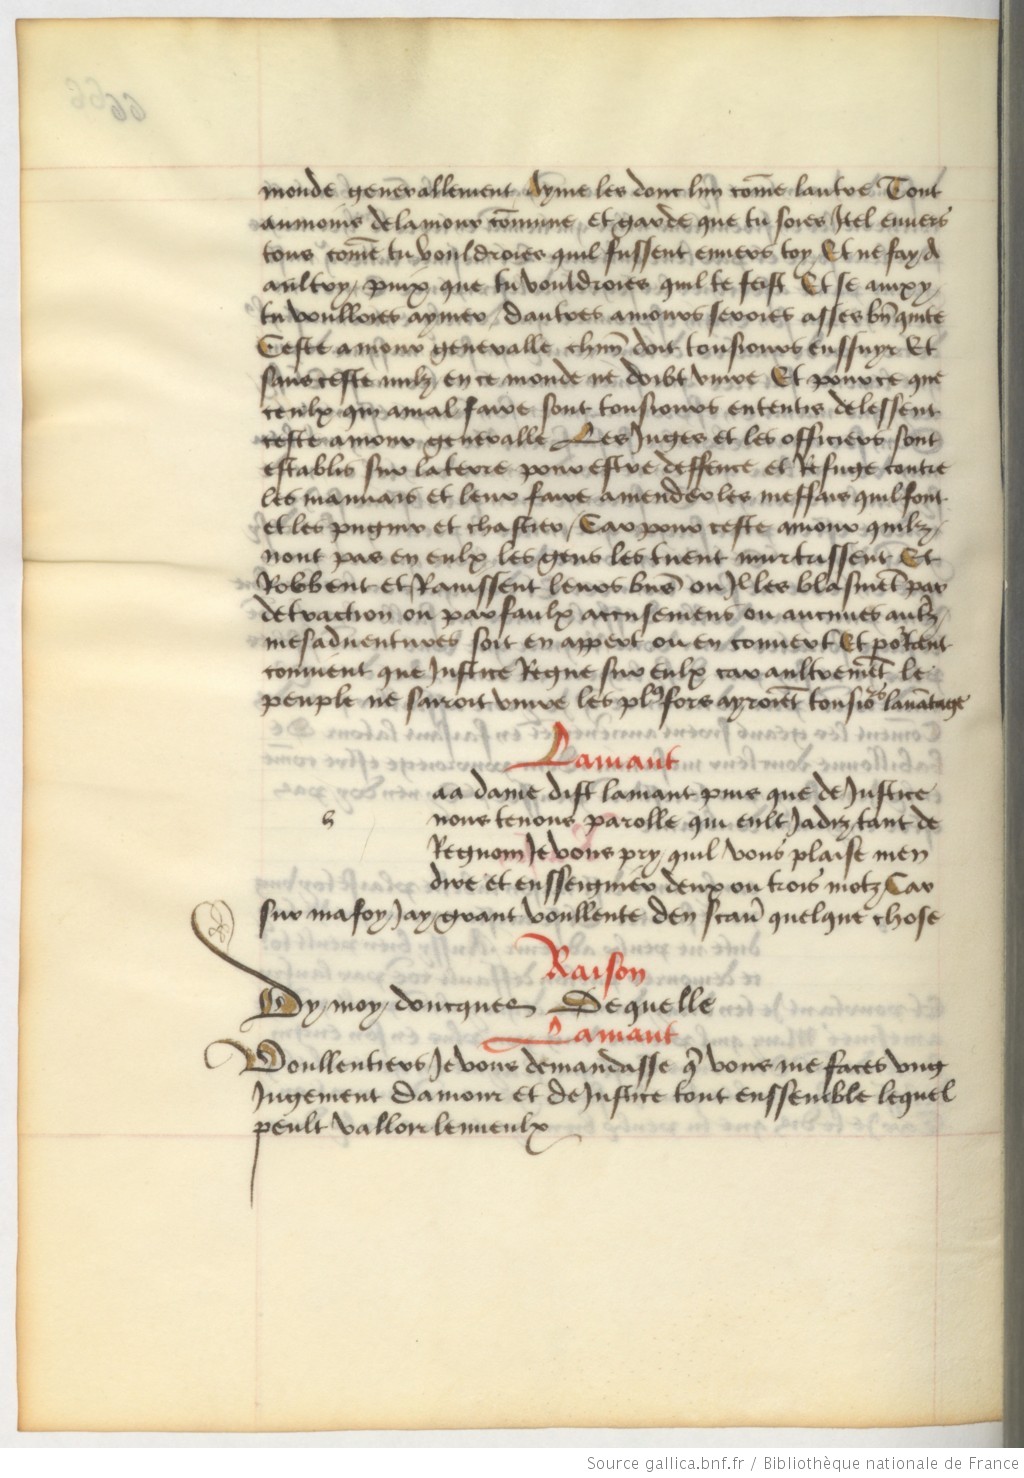 monde generallement Ayme les donc lun cõme lautre Tout
aumoins delamour cõmune et garde que tu soies Itel enuers
tous cõme tu vouldroies quil fussent enuers toy Et ne fay A
aultry / pmx que tu vouldroies quil te feist Et se ainxy
tu voulloies aymer / dautres amours seroies asses bñ quite
Ceste amour generalle chũn doit tousiours enssuyr Et
sans ceste nulz en ce monde ne doibt viure Et pour ce que
ceulx qui amal faire sont tousiours ententis delessent
ceste amour generalle Les Juges et les officiers sont
establis sur la terre pour estre deffence et Refuge contre
les mauuais et leur faire amender les meffais quil font
et les pugnir et chastier / Car pour ceste amour quilz
nont pas en eulx les gens les tuent murtrissent Et
Robbent et Rauissent leurs bñs ou Jl les blasmẽt par
detraction ou par faulx accusemens ou aucunes aultz
mesaduentures soit en appert ou en couuert Et po᷑ cent
conuient que Justice Regne sur eulx car aultremẽt le
peuple ne sarroit viure les pl9 fors ayroiẽt tousio᷑s lauãtage
Lamant
aa dame dist lamant puis que de Justice
h nous tenons parolle qui eult Jadiz tant de
Regnom Je vous pry quil vous plaise men
dire et ensseigner deux ou trois motz Car
sur ma foy Jay grant voullente den scau᷑ quelque chose
Raison
Dy / moy / doncques De quelle
Lamant
Voullentiers Je vous demandasse q̃ vous me faces vng
Jugement damour et de Justice tout enssemble lequel
peult valloir le mieulx
Source gallica.bnf.fr / Bibliothèque nationale de France